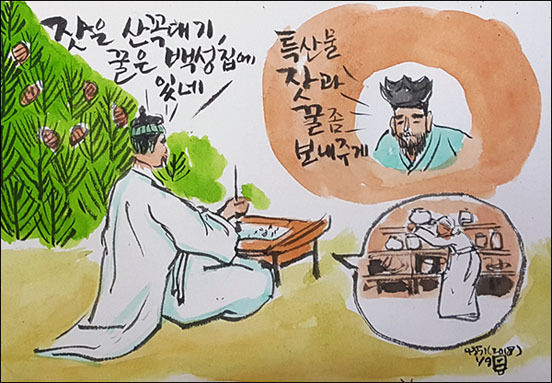 잣은 산꼭대기,
꿀은 백성집에
있네
특산물
잣과
꿀 좀
보내주게
4351(2018)
1/9